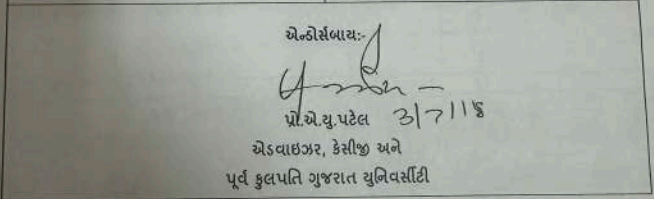 એન્ડોર્સબાયઃ-
પ્રો.એ.યુ.પટેલ 3/7/18
એડવાઇઝર, કેસીજી અને
પૂર્વ કુલપતિ ગુજરાત યુનિવર્સીટી